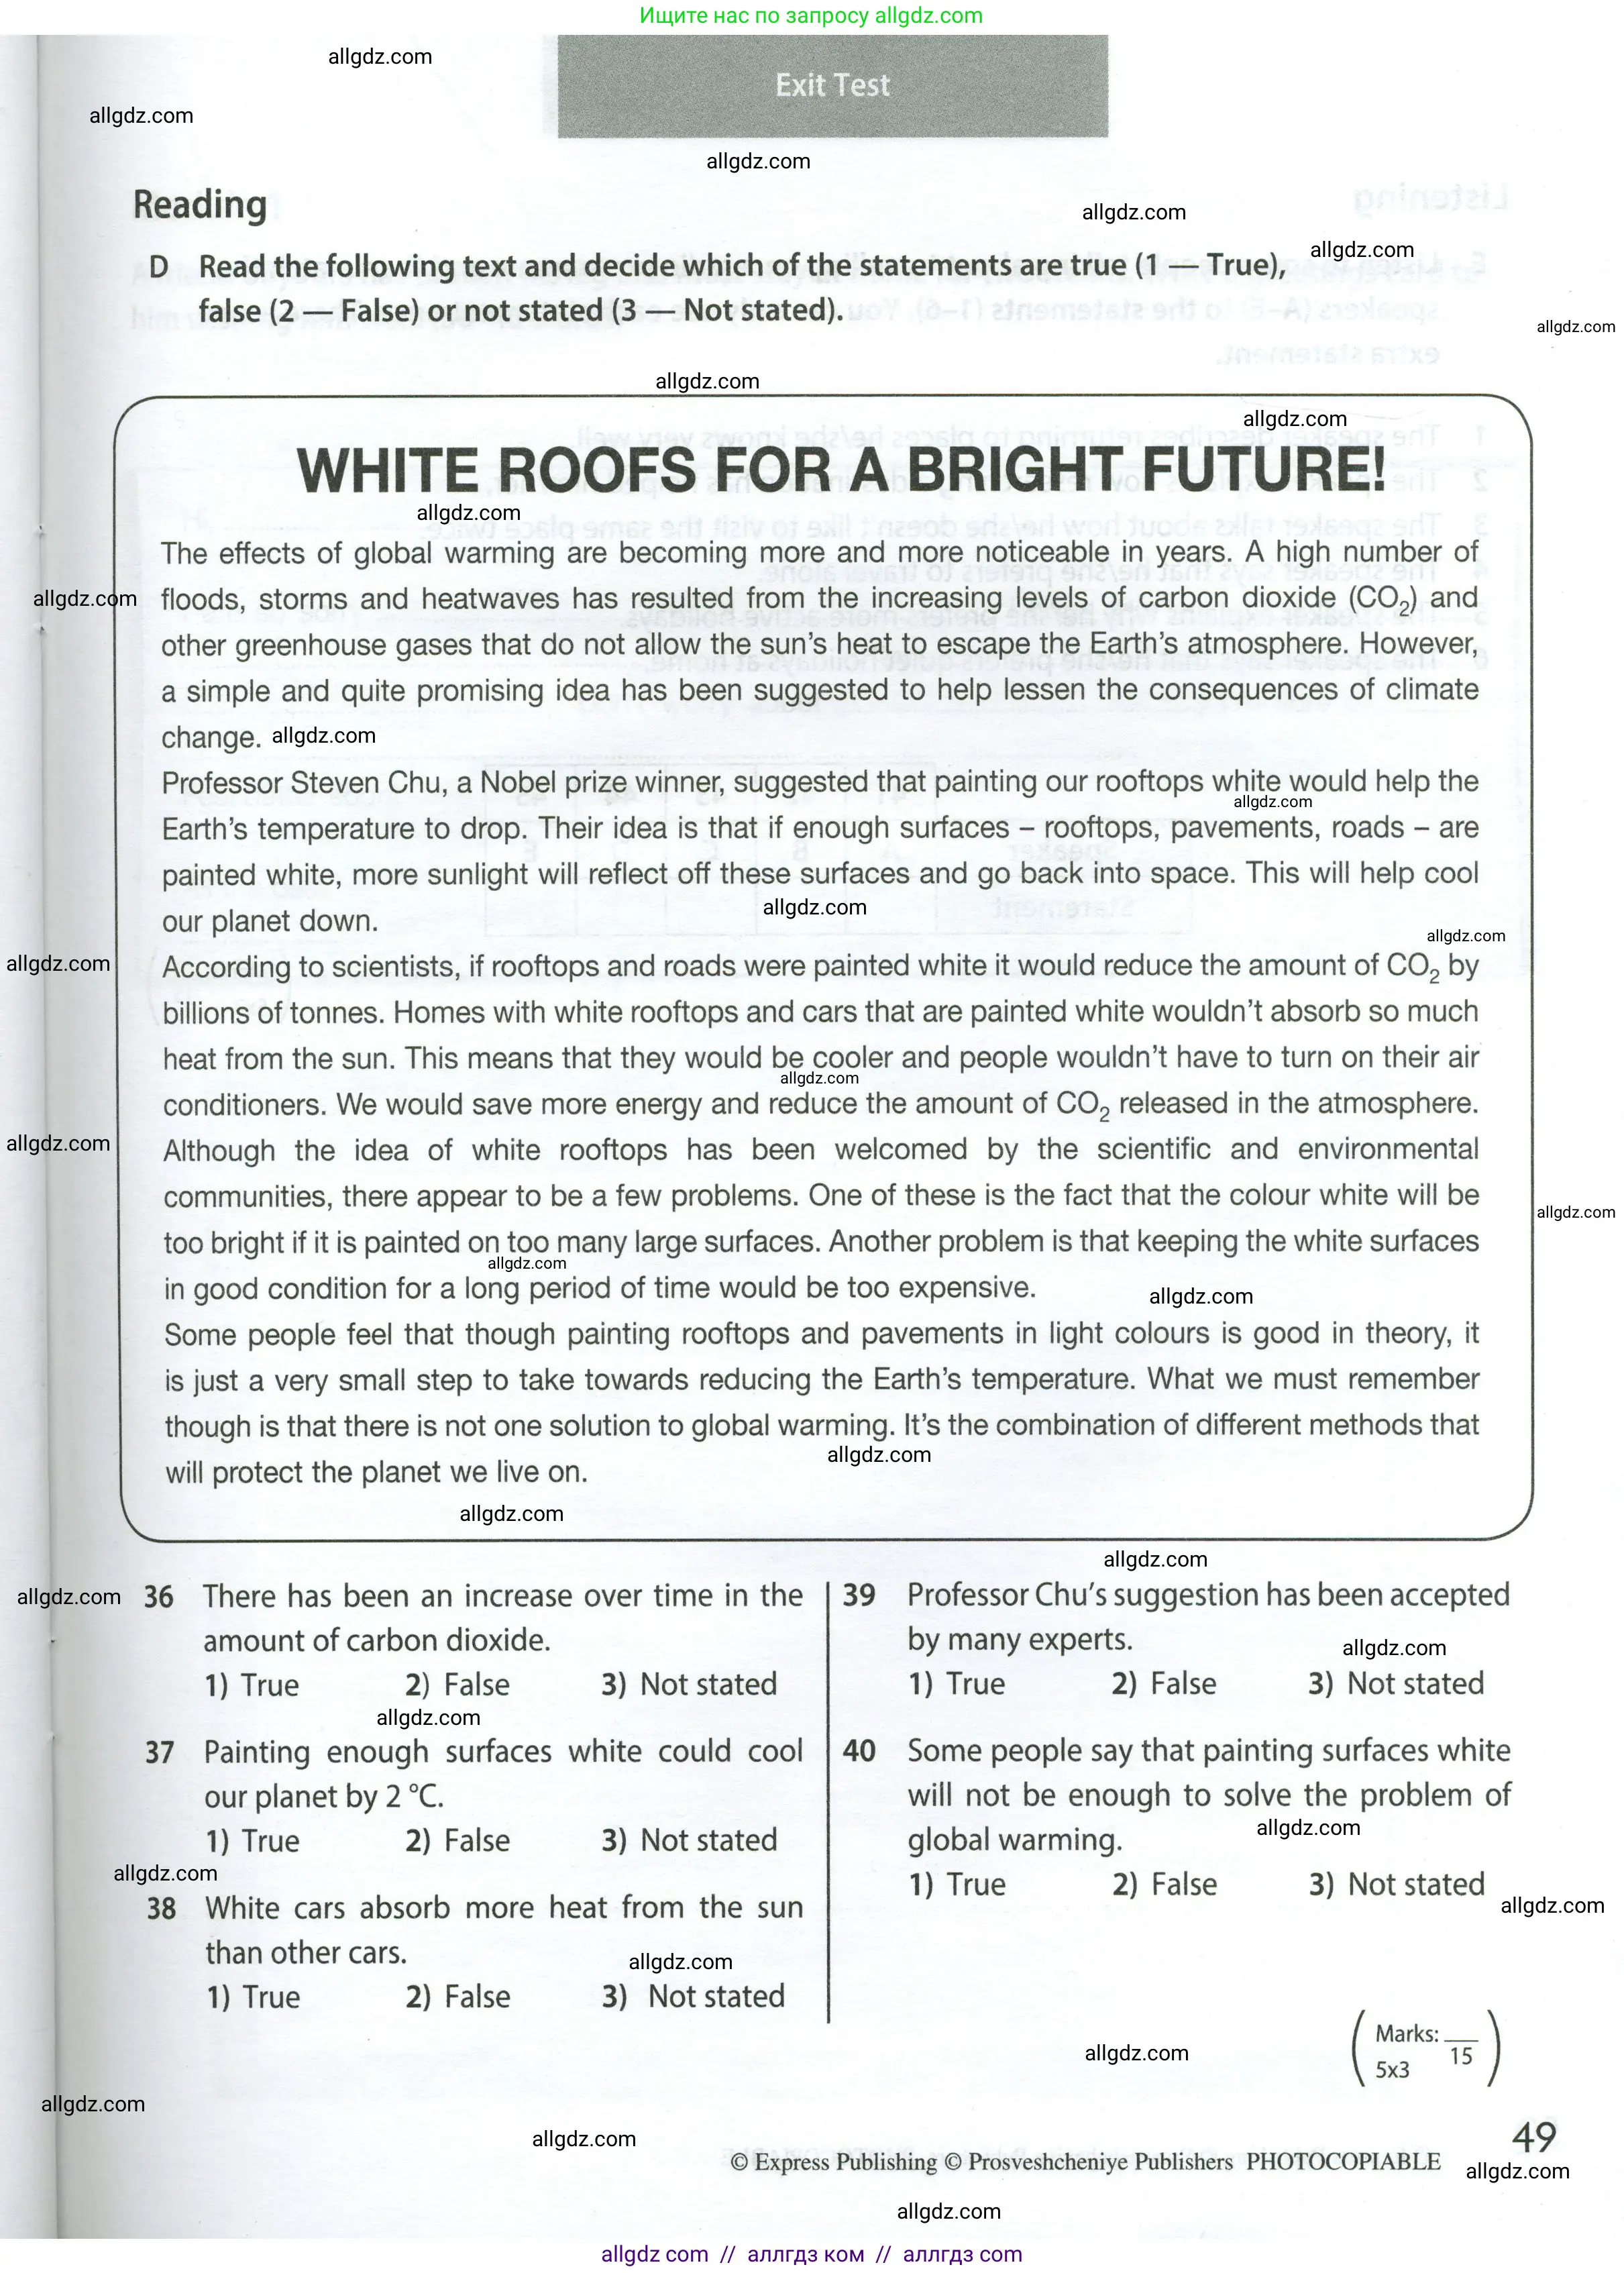 Ищите нас по запросу allgdz.com
allgdz.com
Exit Test
allgdz.com
allgdz.com
Reading
allgdz.com
allgdz.com
D Read the following text and decide which of the statements are true (1 — True),
false (2 — False) or not stated (3 — Not stated).
allgdz.com
allgdz.com
allgdz.com
WHITE ROOFS FOR A BRIGHT FUTURE!
allgdz.com
The effects of global warming are becoming more and more noticeable in years. A high number of
allgdz.com
floods, storms and heatwaves has resulted from the increasing levels of carbon dioxide (CO₂) and
other greenhouse gases that do not allow the sun's heat to escape the Earth's atmosphere. However,
a simple and quite promising idea has been suggested to help lessen the consequences of climate
change.
allgdz.com
Professor Steven Chu, a Nobel prize winner, suggested that painting our rooftops white would help the
allgdz.com
Earth's temperature to drop. Their idea is that if enough surfaces – rooftops, pavements, roads – are
painted white, more sunlight will reflect off these surfaces and go back into space. This will help cool
allgdz.com
our planet down.
allgdz.com
allgdz.com
According to scientists, if rooftops and roads were painted white it would reduce the amount of CO₂ by
billions of tonnes. Homes with white rooftops and cars that are painted white wouldn't absorb so much
heat from the sun. This means that they would be cooler and people wouldn't have to turn on their air
allgdz.com
conditioners. We would save more energy and reduce the amount of CO₂ released in the atmosphere.
allgdz.com
Although the idea of white rooftops has been welcomed by the scientific and environmental
communities, there appear to be a few problems. One of these is the fact that the colour white will be
allgdz.com
too bright if it is painted on too many large surfaces. Another problem is that keeping the white surfaces
allgdz.com
in good condition for a long period of time would be too expensive.
allgdz.com
Some people feel that though painting rooftops and pavements in light colours is good in theory, it
is just a very small step to take towards reducing the Earth's temperature. What we must remember
though is that there is not one solution to global warming. It's the combination of different methods that
allgdz.com
will protect the planet we live on.
allgdz.com
allgdz.com
allgdz.com
36 There has been an increase over time in the
amount of carbon dioxide.
1) True 2) False 3) Not stated
allgdz.com
37 Painting enough surfaces white could cool
our planet by 2 °C.
1) True 2) False 3) Not stated
allgdz.com
38 White cars absorb more heat from the sun
than other cars.
allgdz.com
1) True 2) False 3) Not stated
39 Professor Chu's suggestion has been accepted
by many experts.
allgdz.com
1) True 2) False 3) Not stated
40 Some people say that painting surfaces white
will not be enough to solve the problem of
allgdz.com
global warming.
1) True 2) False 3) Not stated
allgdz.com
Marks: ___
15
5x3
allgdz.com
allgdz.com
allgdz.com
49
© Express Publishing © Prosveshcheniye Publishers PHOTOCOPIABLE
allgdz.com
allgdz.com
allgdz com // аллгдз ком // аллгдз com